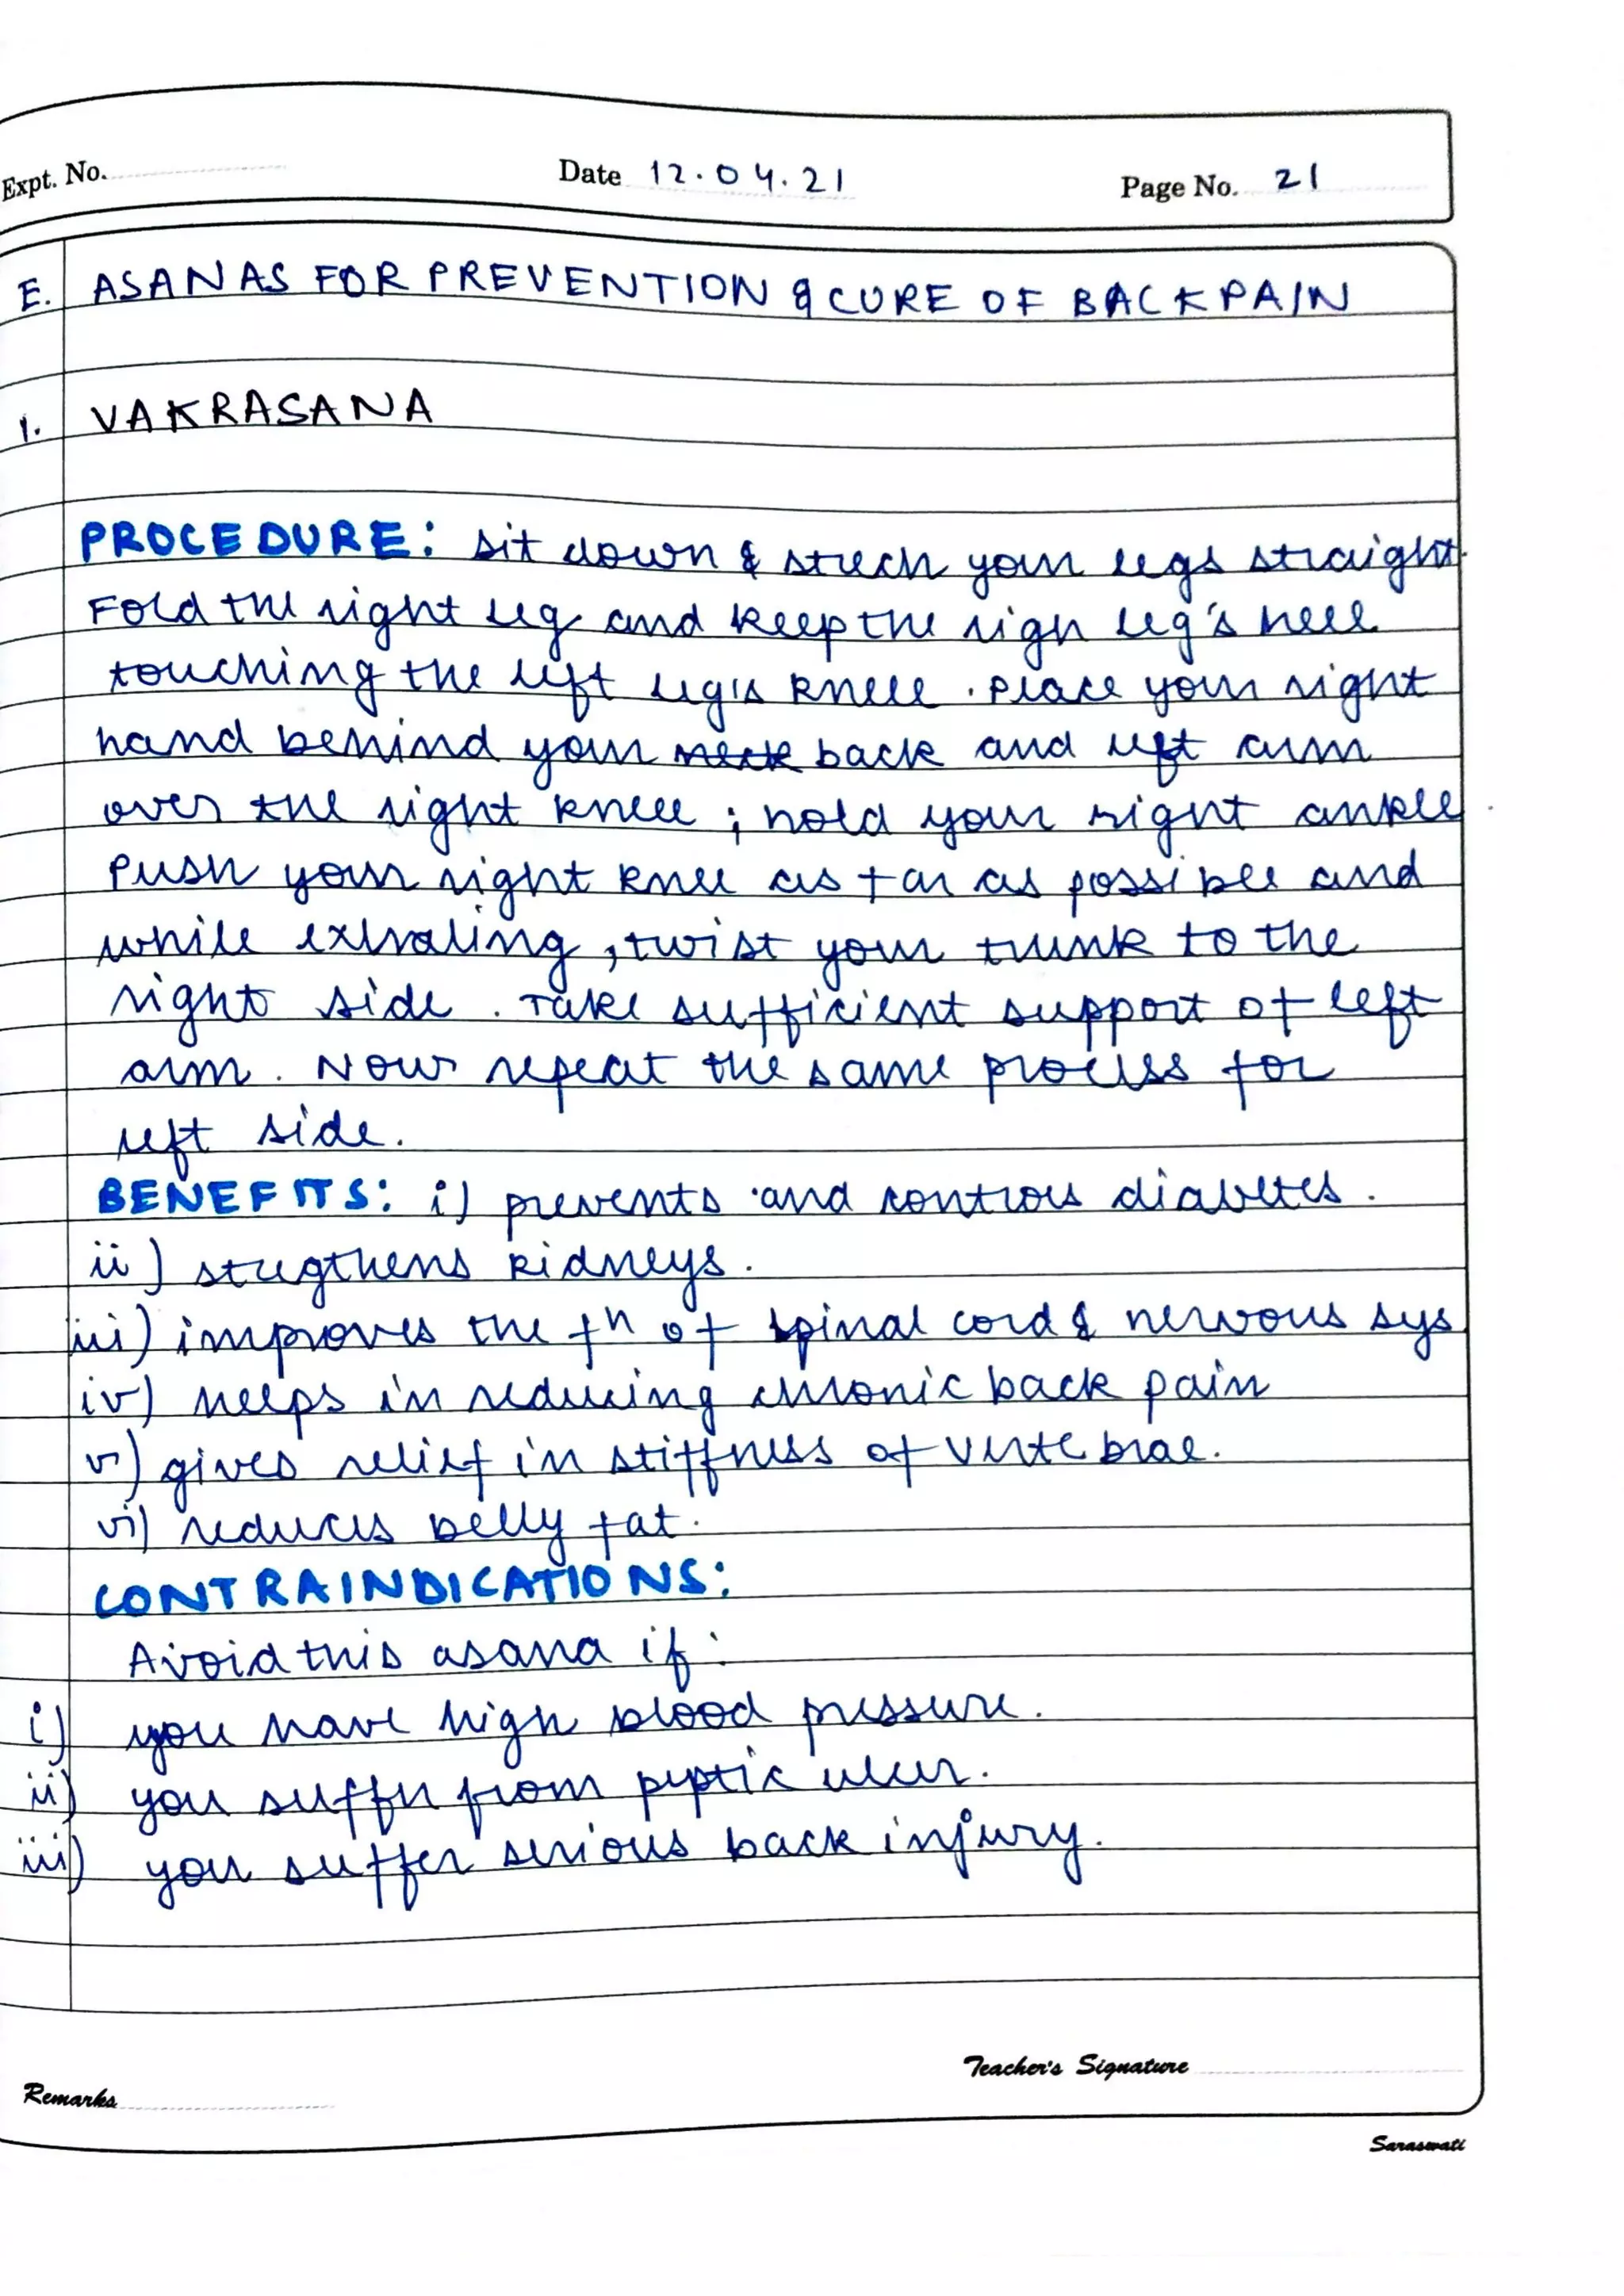 Expt. No. Date 12.04.21 Page No. 21
E. ASANAS FOR PREVENTION & CURE OF BACKPAIN
1. VAKRASANA
PROCEDURE: sit down & strech your legs straight.
Fold the right leg and keep the righ leg's heel
touching the left leg's knee. Place your right
hand behind your neck back and left arm
over the right knee ; hold your right ankle
Push your right knee as far as possible and
while exhaling, twist your trunk to the
right side. Take sufficient support of left
arm. Now repeat the same process for
left side.
BENEFITS: i) prevents and controls diabetes.
ii) stregthens kidneys.
iii) improves the fn of spinal cord & nervous sys
iv) helps in reducing chronic back pain
v) gives relief in stiffness of vertebrae.
vi) reduces belly fat.
CONTRAINDICATIONS:
Avoid this asana if:
i) you have high blood pressure.
ii) you suffer from pyptic ulcer.
iii) you suffer serious back injury.
Teacher's Signature
Remarks
Saraswati